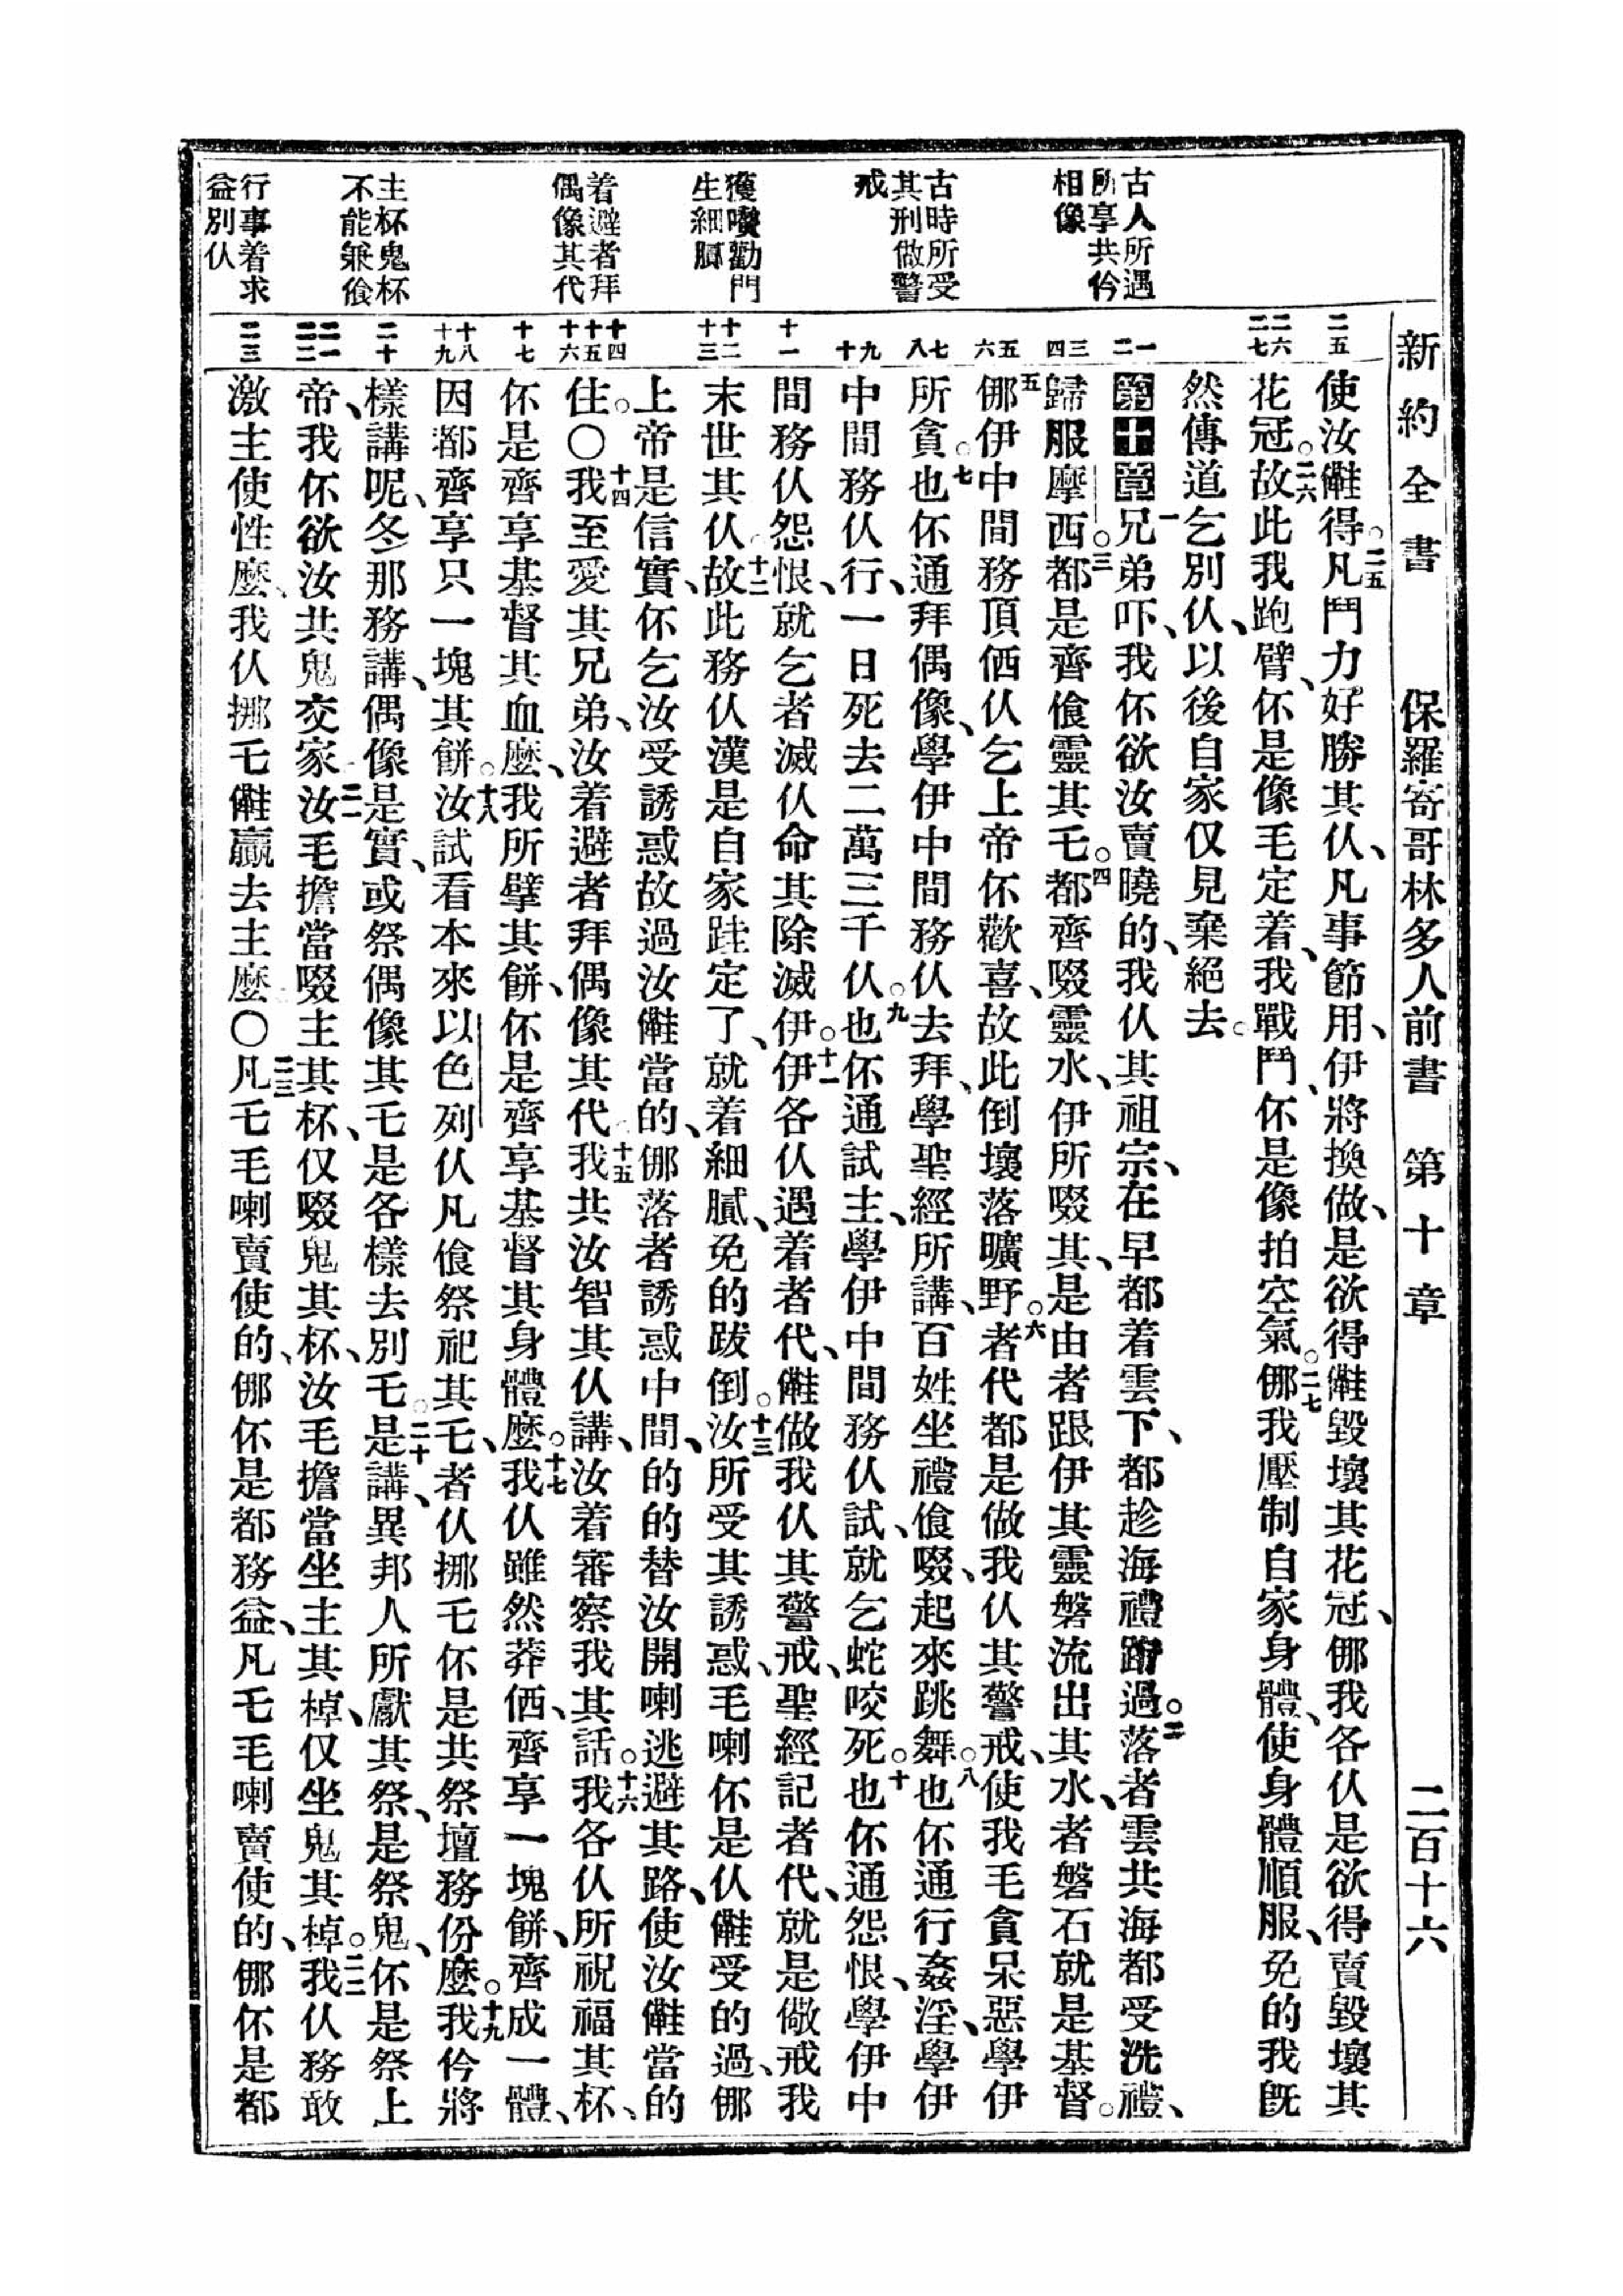 新約全書　保羅寄哥林多人前書　第十章　二百十六
古人所遇
所享共仱
相像
古時所受
其刑做警
戒
獲嚽勸門
生細膩
着避者拜
偶像其代
主杯鬼杯
不能兼飡
行事着求
益別仈
二五
二六
二七
一
二
三
四
五
六
七
八
九
十
十一
十二
十三
十四
十五
十六
十七
十八
十九
二十
二一
二二
二三
使汝㑻得。二五凡鬥力好勝其仈、凡事節用、伊將換做、是欲得㑻毀壞其花冠、䣝我各仈是欲得賣毀壞其
花冠。二六故此我跑臂、伓是像毛定着、我戰鬥、伓是像拍空氣。二七䣝我壓制自家身體、使身體順服、免的我旣
然傳道乞別仈、以後自家仅見棄絕去。
第十章一兄弟吓、我伓欲汝賣曉的、我仈其祖宗、在早都着雲下、都趁海禮跨過。二落者雲共海都受洗禮、
歸服摩西。三都是齊飡靈其乇。四都齊啜靈水、伊所啜其、是由者跟伊其靈磐流出其水、者磐石就是基督。
五䣝伊中間務頂㑚仈乞上帝伓歡喜、故此倒壞落曠野。六者代都是做我仈其警戒、使我毛貪呆惡學伊
所貪。七也伓通拜偶像、學伊中間務仈去拜、學聖經所講、百姓坐禮飡啜、起來跳舞。八也伓通行姦淫、學伊
中間務仈行、一日死去二萬三千仈。九也伓通試主、學伊中間務仈試、就乞蛇咬死。十也伓通怨恨、學伊中
間務仈怨恨、就乞者滅仈命其除滅伊。十一伊各仈遇着者代、㑻做我仈其警戒、聖經記者代、就是儆戒我
末世其仈。十二故此務仈漢是自家跬定了、就着細膩、免的跋倒。十三汝所受其誘惑、毛喇伓是仈㑻受的過、䣝
上帝是信實、伓乞汝受誘惑故過汝㑻當的、䣝落者誘惑中間、的的替汝開喇逃避其路、使汝㑻當的
住。〇十四我至愛其兄弟、汝着避者拜偶像其代。十五我共汝智其仈講、汝着審察我其話。十六我各仈所祝福其杯、
伓是齊享基督其血麼、我所擘其餅、伓是齊享基督其身體麼。十七我仈雖然莽㑚、齊享一塊餅、齊成一體、
因都齊享只一塊其餅。十八汝試看本來以色列仈凡飡祭祀其乇、者仈挪乇伓是共祭壇務份麼。十九我仱將
樣講呢、冬那務講、偶像是實、或祭偶像其乇是各樣去別乇。二十是講、異邦人所獻其祭、是祭鬼、伓是祭上
帝、我伓欲汝共鬼交家。二一汝毛擔當啜主其杯、仅啜鬼其杯、汝毛擔當坐主其棹、仅坐鬼其棹。二二我仈務敢
激主使性麼、我仈挪乇㑻贏去主麼。〇二三凡乇毛喇賣使的、䣝伓是都務益、凡乇毛喇賣使的、䣝伓是都